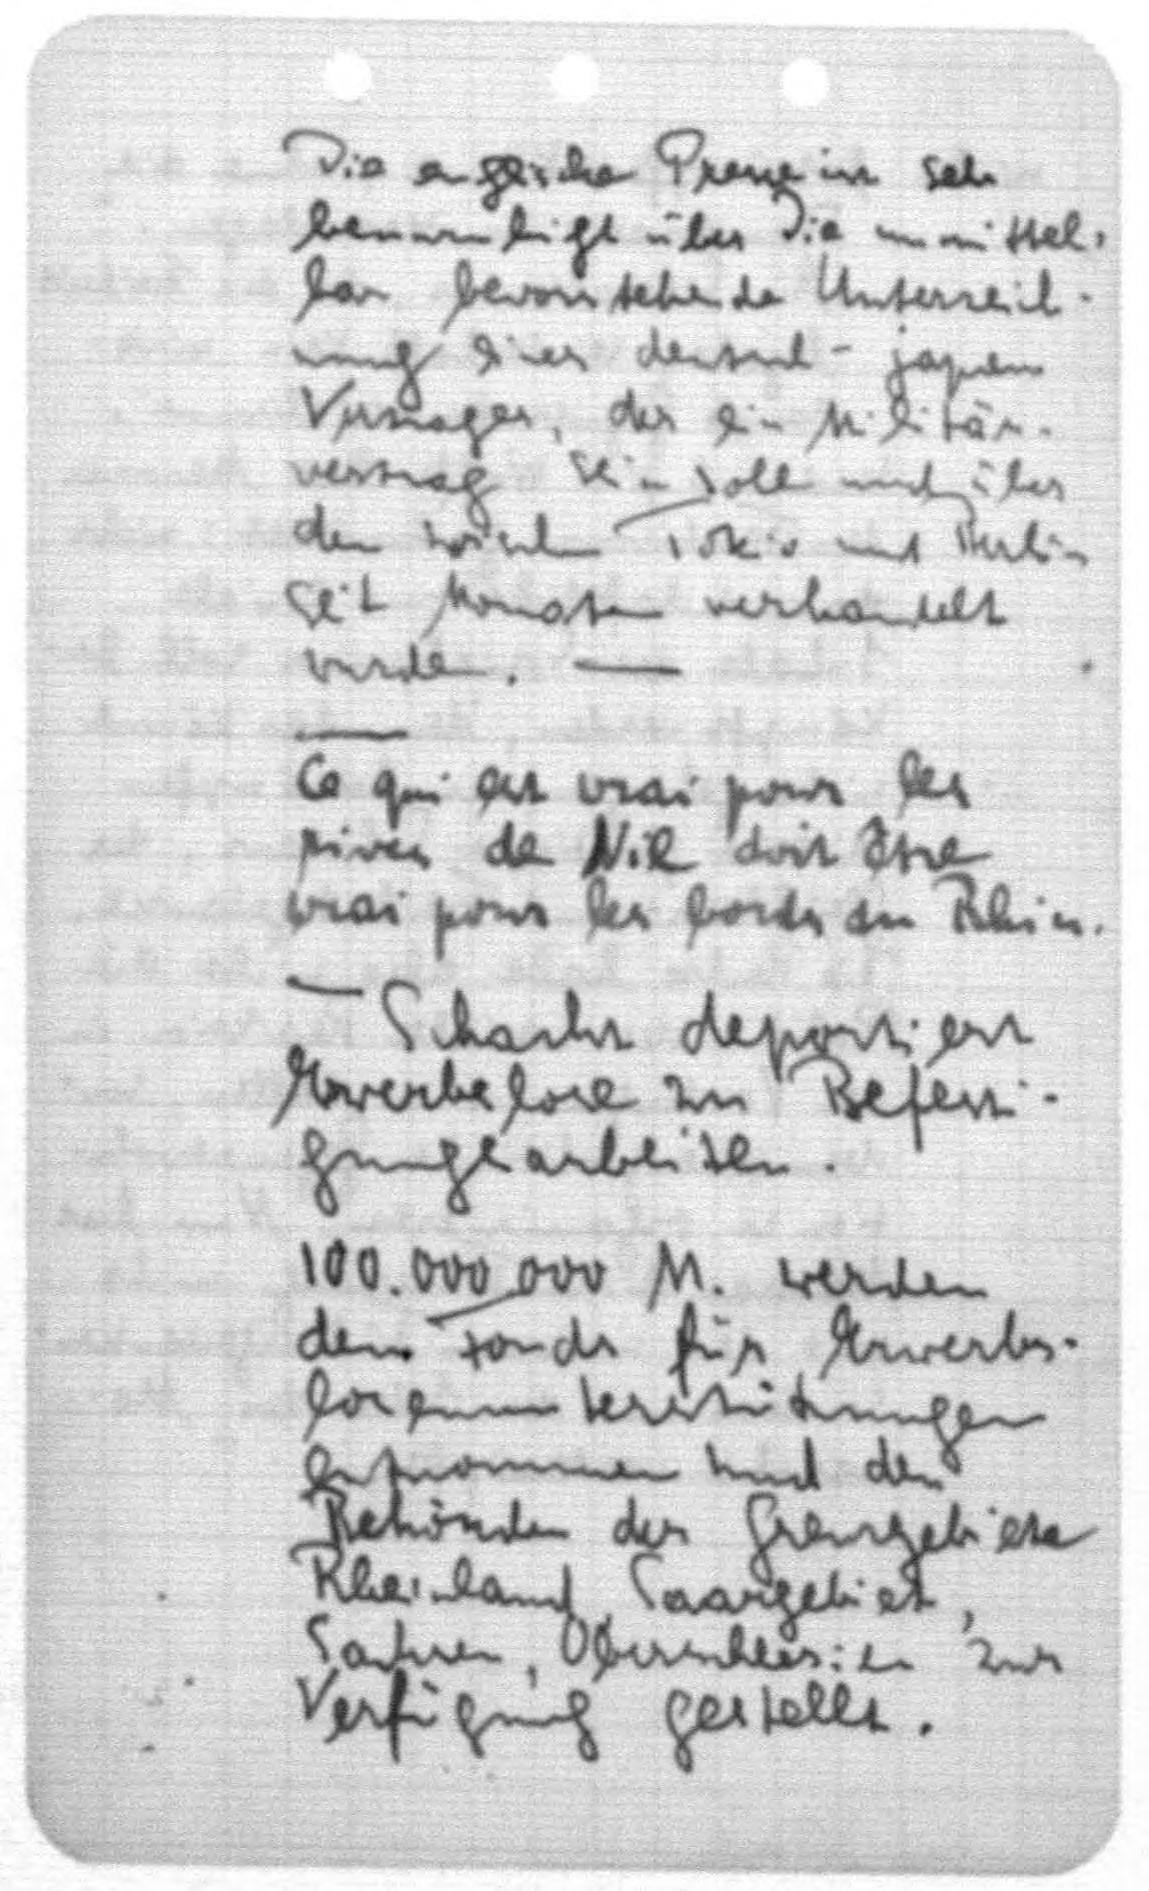 Die englische Presse ist sehr
beunruhigt über die unmittel-
bar bevorstehende Unterzeich-
nung eines deutsch-japan
Vertrages, der ein Militär-
vertrag sein soll und über
den zwischen Tokio und Berlin
seit Monaten verhandelt
wurde. —
—
Ce qui est vrai pour les
rives de Nil doit être
vrai pour les bords du Rhin.
— Schacht deportiert
Erwerbslose zu Befesti-
gungsarbeiten.
100.000.000 M. werden
dem Fonds für Erwerbs-
losenunterstützungen
entnommen und den
Behörden der Grenzgebiete
Rheinland, Saargebiet,
Sachsen, Oberschlesien zur
Verfügung gestellt.